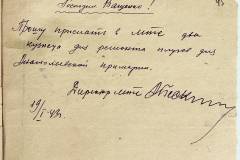 Господин Ващенко!
Прошу прислать в МТС два
кузнеца для ремонта плугов для
Николаевской примарии.
Директор МТС
19/I-43г.